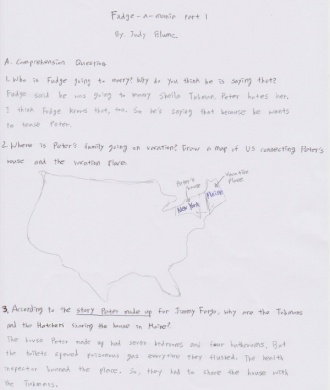 Fudge-a-mania part 1
By. Judy Blume
A. Comprehension Question
1. Who is Fudge going to marry? Why do you think he is saying that?
Fudge said he was going to marry Sheila Tubman. Peter hates her.
I think Fudge knows that, too. So he's saying that because he wants
to tease Peter.
2. Where is Peter's family going on vacation? Draw a map of US connecting Peter's
house and the vacation place.
Peter's
house
Vacation
Place
New York
Maine
3. According to the story Peter made up for Jimmy Fargo, why are the Tubmans
and the Hatchers sharing the house in Maine?
The house Peter made up had seven bedrooms and four bathrooms. But
the toilets spewed poisonous gas everytime they flushed. The health
inspector burned the place. So, they had to share the house with
the Tubmans.